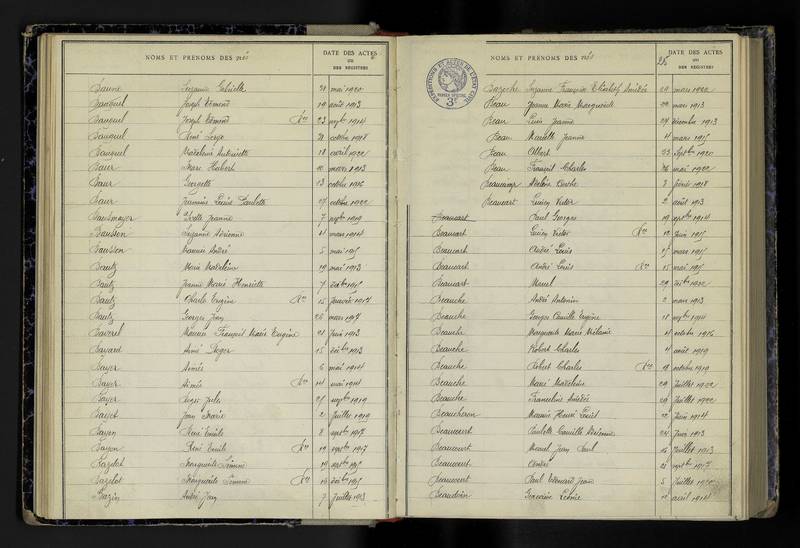 NOMS ET PRENOMS DES nés
DATE DES ACTES
OU
DES REGISTRES
Baune Suzanne Gabrielle 21 mai 1920
Bauquel Joseph Edmond 19 août 1913
Bauquel Joseph Edmond Ron 23 sepbre 1914
Bauquel René Serge 31 octobre 1918
Bauquel Madeleine Antoinette 18 avril 1922
Baur Marc Hubert 10 mars 1913
Baur Georgette 13 octobre 1916
Baur Jeannine Louise Paulette 27 octobre 1922
Bausmayer Odette Jeanne 7 sepbre 1919
Bausson Suzanne Adrienne 11 mars 1914
Bausson Maurice André 5 mai 1915
Bautz Marie Madeleine 19 mai 1913
Bautz Jeanne Marie Henriette 7
Bautz Charles Eugène Ron 15 Janvier 1917
Bautz Georges Jean 26 mars 1917
Baverel Maurice François Marie Eugène 21 Juin 1913
Bayard Aimé Roger 15 1913
Bayer Aimée 6 mai 1914
Bayer Aimée Ron 14 mai 1914
Bayer Roger Jules sepbre 1919
Bayet Jean Marie 2 Juillet 1919
Bayon René Emile 8 sepbre 1917
Bayon René Emile Ron 19 sepbre 1917
Bazelot Marguerite Simone 19
Bazelot Marguerite Simone Ron
Bazin André Jean 7 Juillet 1913
EXPEDITIONS ET ACTES DE L'ETAT CIVIL
PAPIER SPECIAL
3F
NOMS ET PRENOMS DES nés
25
DATE DES ACTES
OU
DES REGISTRES
Bazoche Suzanne Françoise Elisabeth Amédée 20 mars 1922
Beau Jeanne Marie Marguerite 22 mars 1913
Beau Lucie Jeanne 27 décembre 1913
Beau Marcelle Jeanne 11 mars 1915
Beau Albert 23 Septbre 1920
Beau François Charles 26 mai 1922
Beaucamp 3 février 1918
Beaucart Lucien Victor 2 août 1913
Beaucart Paul Georges 19 sepbre 1914
Beaucart Lucien Victor Ron 12 Juin 1915
Beaucart André Louis mars 1915
Beaucart André Louis Ron 15 mai 1915
Beaucart Marcel 29 1922
Beauche André Antonin 2 mars 1913
Beauche Georges Camille Eugène 18 sepbre 1914
Beauche Marguerite Marie Mélanie 11 octobre 1916
Beauche Robert Charles 11 août 1919
Beauche Robert Charles Ron 18 octobre 1919
Beauche Marie Madeleine 29 Juillet 1922
Beauche Franceline Amédée 29 Juillet 1922
Beaucheron Maurice Henri Louis 22 Juin 1914
Beaucourt Paulette Camille Adrienne 24 Juin 1913
Beaucourt Marcel Jean Paul 16 Juillet 1913
Beaucourt André 21 sepbre 1917
Beaucourt Paul Edouard Jean 5 Juillet
Beaudoin Germaine Léonie 11 avril 1914